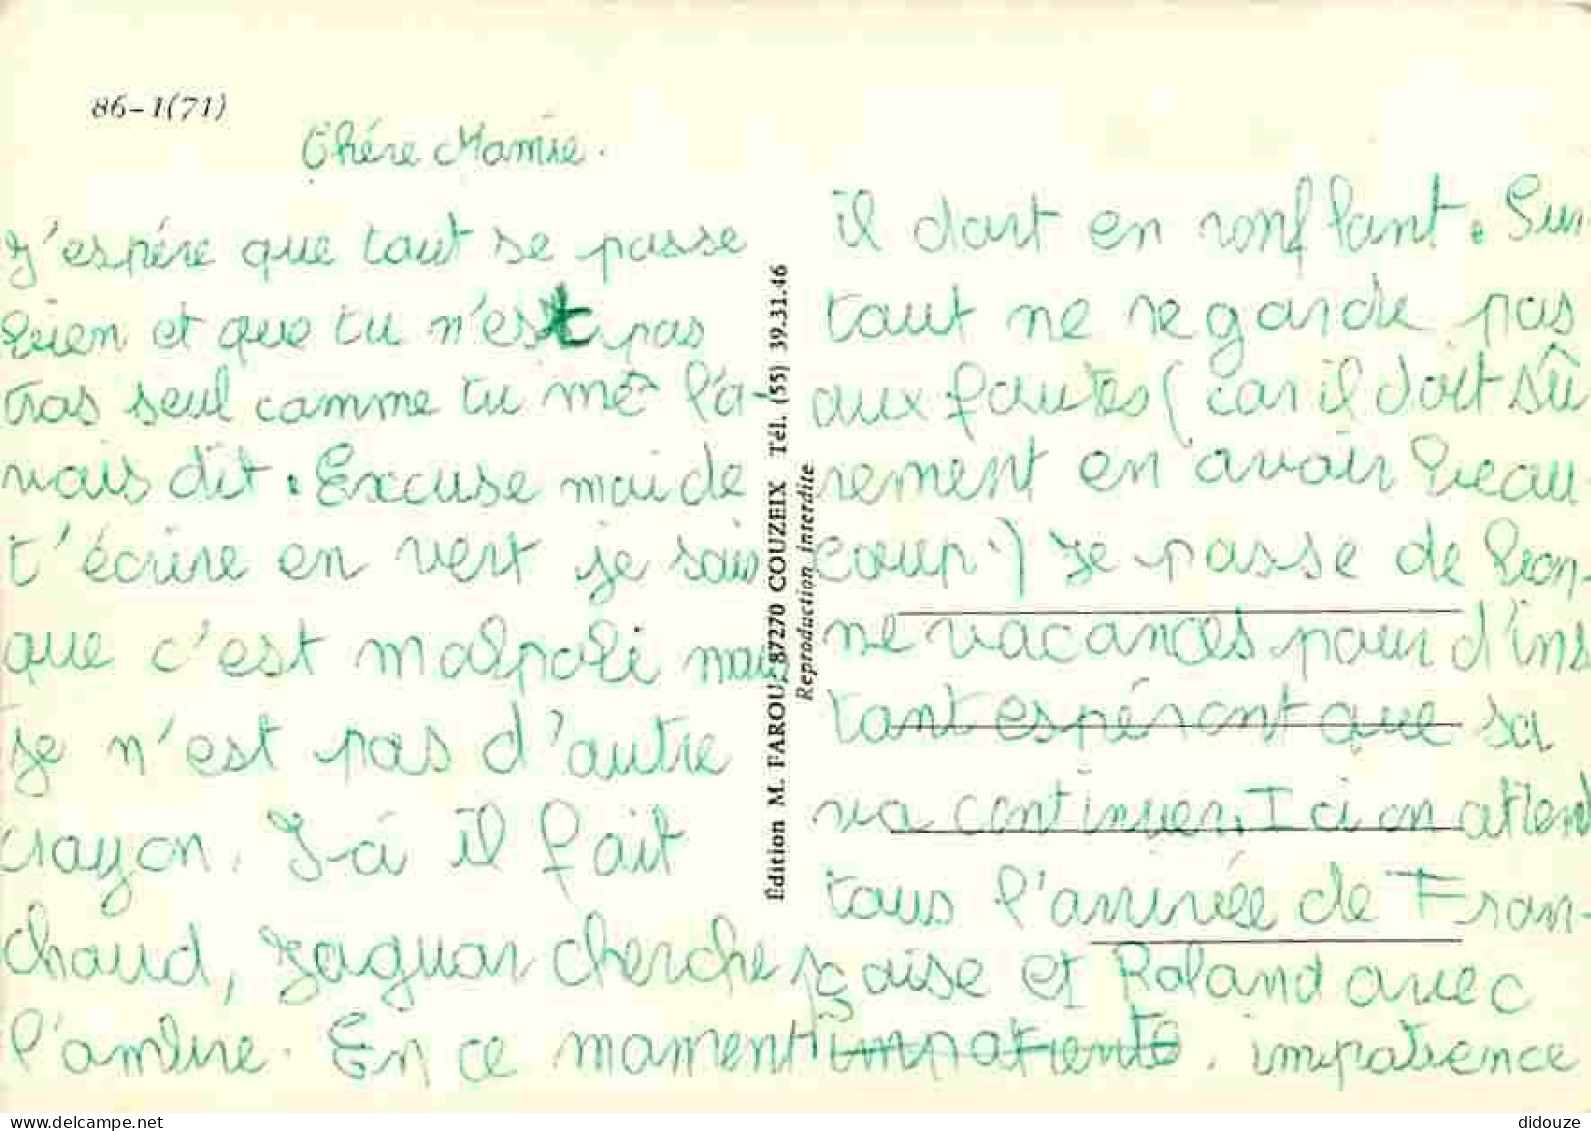 86-1(71)
Chére Mamie.
J'espére que tout se passe
bien et que tu n'est pas
tros seul comme tu me l'a-
vais dit. Excuse moi de
t'écrire en vert je sais
que c'est malpoli mais
je n'est pas d'autre
crayon. I-ci il fait
chaud, Jaguar cherche
l'ombre. En ce moment
il dort en ronflant. Sur-
tout ne regarde pas
aux fautes (car il doit sû
rement en avoir beau
coup.) Je passe de bon-
ne vacances pour d'ins
tant espérant que sa
va continuer. I ci on attend
tous l'arrivée de Fran-
çaise et Roland avec
impatiente. impatience
Édition M. FAROU, 87270 COUZEIX Tél. (55) 39.31.46
Reproduction interdite
delcampe.net
didouze